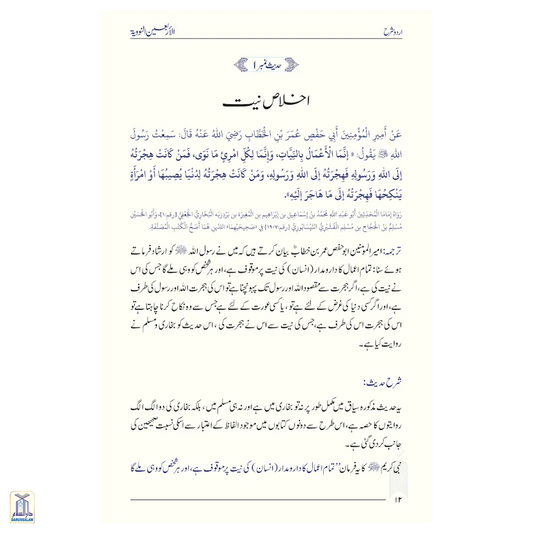 اردو شرح
الأربعين النووية
حدیث نمبر ۱
اخلاص نیت
عَنْ أَمِيرِ الْمُؤْمِنِينَ أَبِي حَفْصٍ عُمَرَ بْنِ الْخَطَّابِ رَضِيَ اللهُ عَنْهُ قَالَ: سَمِعْتُ رَسُولَ
اللهِ ﷺ يَقُولُ: «إِنَّمَا الْأَعْمَالُ بِالنِّيَّاتِ، وَإِنَّمَا لِكُلِّ امْرِئٍ مَا نَوَى، فَمَنْ كَانَتْ هِجْرَتُهُ
إِلَى اللهِ وَرَسُولِهِ فَهِجْرَتُهُ إِلَى اللهِ وَرَسُولِهِ، وَمَنْ كَانَتْ هِجْرَتُهُ لِدُنْيَا يُصِيبُهَا أَوْ امْرَأَةٍ
يَنْكِحُهَا فَهِجْرَتُهُ إِلَى مَا هَاجَرَ إِلَيْهِ».
رَوَاهُ إِمَامَا الْمُحَدِّثِينَ أَبُو عَبْدِ اللهِ مُحَمَّدُ بْنُ إِسْمَاعِيلَ بنِ إِبْرَاهِيمَ بنِ الْمُغِيرَةِ بنِ بَرْدِزْبَه الْبُخَارِيُّ الْجُعْفِيُّ [رقم:۱]، وَأَبُو الْحُسَيْنِ
مُسْلِمُ بنُ الْحَجَّاجِ بنِ مُسْلِمٍ الْقُشَيْرِيُّ النَّيْسَابُورِيُّ [رقم:۱۹۰۷] فِي «صَحِيحَيْهِمَا» اللَّذَيْنِ هُمَا أَصَحُّ الْكُتُبِ الْمُصَنَّفَةِ.
ترجمہ: امیر المؤمنین ابو حفص عمر بن خطاب بیان کرتے ہیں کہ میں نے رسول اللہ ﷺ کو ارشاد فرماتے
ہوئے سنا: تمام اعمال کا دارومدار (انسان) کی نیت پر موقوف ہے، اور ہر شخص کو وہی ملے گا جس کی اس
نے نیت کی ہے، اگر ہجرت سے مقصود اللہ اور رسول تک پہونچنا ہے تو اس کی ہجرت اللہ اور رسول کی طرف
ہے، اور اگر کسی دنیا کی غرض کے لئے ہے تو، یا کسی عورت کے لئے ہے جس سے وہ نکاح کرنا چاہتا ہے تو
اس کی ہجرت اس کی طرف ہے، جس کی نیت سے اس نے ہجرت کی، اس حدیث کو بخاری و مسلم نے
روایت کیا ہے۔
شرح حدیث:
یہ حدیث مذکورہ سیاق میں مکمل طور پر نہ تو بخاری میں ہے اور نہ ہی مسلم میں، بلکہ بخاری کی دو الگ الگ
روایتوں کا حصہ ہے، اس طرح سے دونوں کتابوں میں موجود الفاظ کے اعتبار سے اسکی نسبت صحیحین کی
جانب کر دی گئی ہے۔
نبی کریم ﷺ کا یہ فرمان "تمام اعمال کا دارومدار (انسان) کی نیت پر موقوف ہے، اور ہر شخص کو وہی ملے گا
۱۲
DARUSSALAM